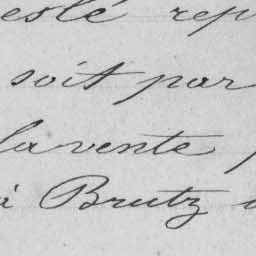 esté rep
soit par
la vente
à Brutz